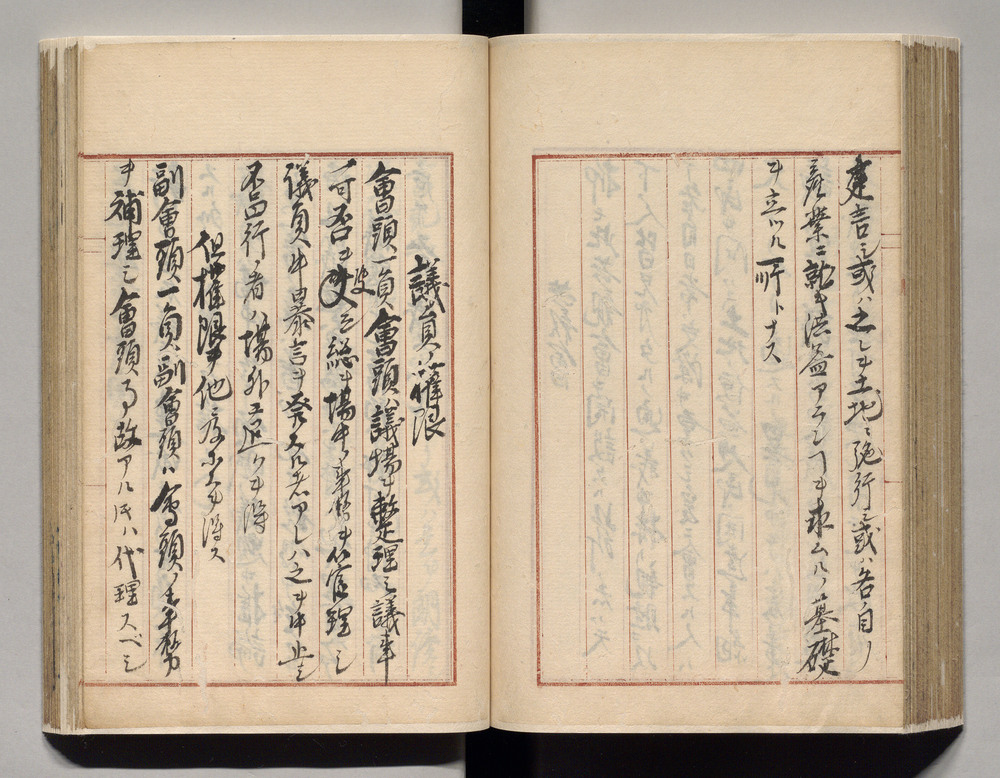 建言シ或ハ之レヲ土地ニ施行シ或ハ各自ノ
産業ニ就キ洪益アラシ丁ヲ求ムルノ基礎
ヲ立ツル所トナス
議員ノ権限
會頭一員會頭ハ議場ヲ整理シ議事
ノ可否ヲ決シ総テ場中ノ事務ヲ管理シ
議員中暴言ヲ発スル者アレハ之ヲ中止シ
不品行ノ者ハ場外エ退クヲ得
但権限ヲ他ニ及ホスヲ得ス
副會頭一員副會頭ハ會頭ノ事務
ヲ補理シ會頭事故アル氏ハ代理スベシ